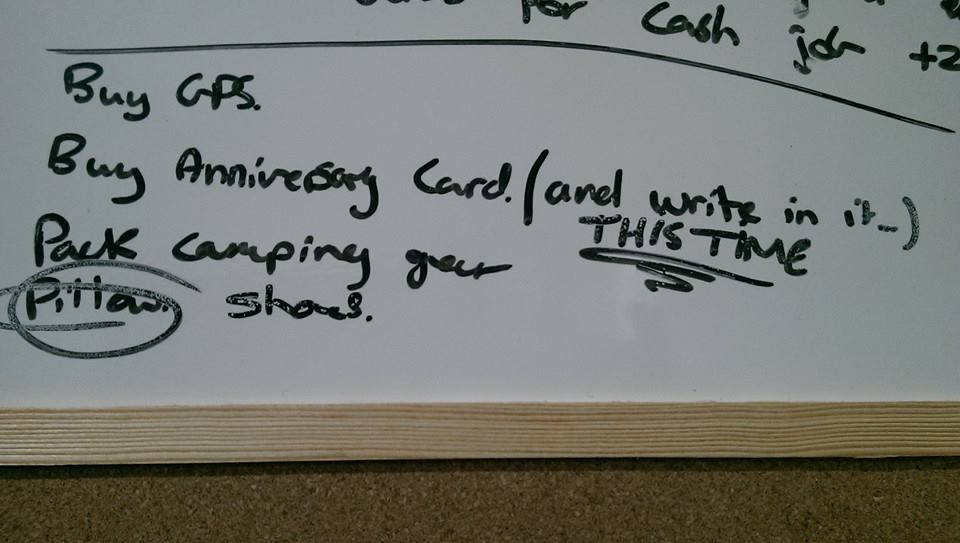 for cash
job +2
Buy GPS.
Buy Anniversary Card. (and write in it...)
THIS TIME
Pack camping gear
Pillow. shoes.